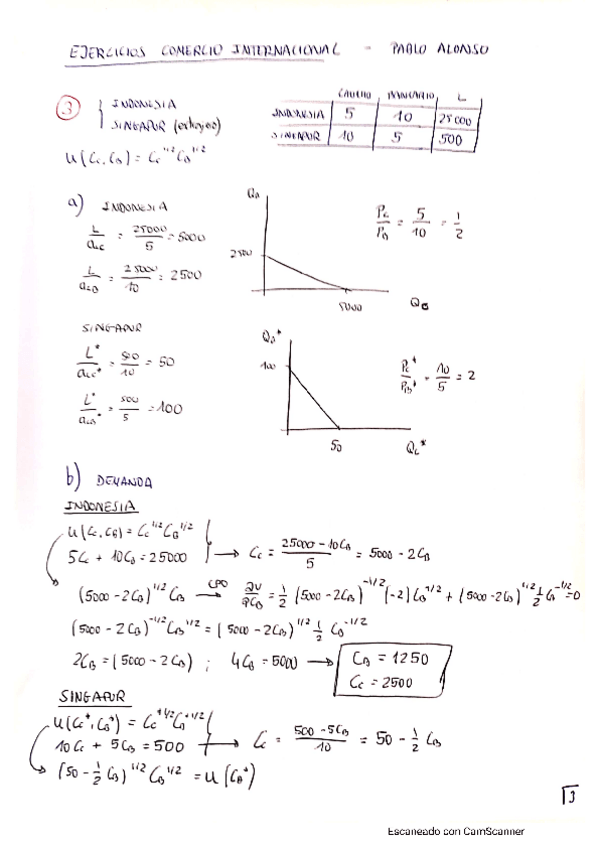 EJERCICIOS COMERCIO INTERNACIONAL - PABLO ALONSO
CAUCHO BANCARIO L
③ { INDONESIA
INDONESIA 5 10 25000
SINGAPUR
SINGAPUR 10 5 500
U(Cc, CB) = Cc^1/2 CB^1/2
a) INDONESIA
L/aLC = 25000/5 = 5000
L/aLB = 25000/10 = 2500
QB
2500
5000
Pc/PB = 5/10 = 1/2
SINGAPUR
L*/aLC* = 500/10 = 50
L*/aLB* = 500/5 = 100
QB*
100
50
Qc*
Pc*/PB* = 10/5 = 2
b) DEMANDA
INDONESIA
U(Cc, CB) = Cc^1/2 CB^1/2
5Cc + 10CB = 25000 → Cc = (25000 - 10CB)/5 = 5000 - 2CB
(5000 - 2CB)^1/2 CB → CPO ∂U/∂CB = 1/2 (5000 - 2CB)^-1/2 (-2) CB^1/2 + (5000 - 2CB)^1/2 1/2 CB^-1/2 = 0
(5000 - 2CB)^-1/2 CB^1/2 = (5000 - 2CB)^1/2 1/2 CB^-1/2
2CB = (5000 - 2CB) ; 4CB = 5000 → CB = 1250
Cc = 2500
SINGAPUR
U(Cc*, CB*) = Cc*^1/2 CB*^1/2
10Cc + 5CB = 500 → Cc = (500 - 5CB)/10 = 50 - 1/2 CB
(50 - 1/2 CB)^1/2 CB^1/2 = U(CB*)
3
Escaneado con CamScanner